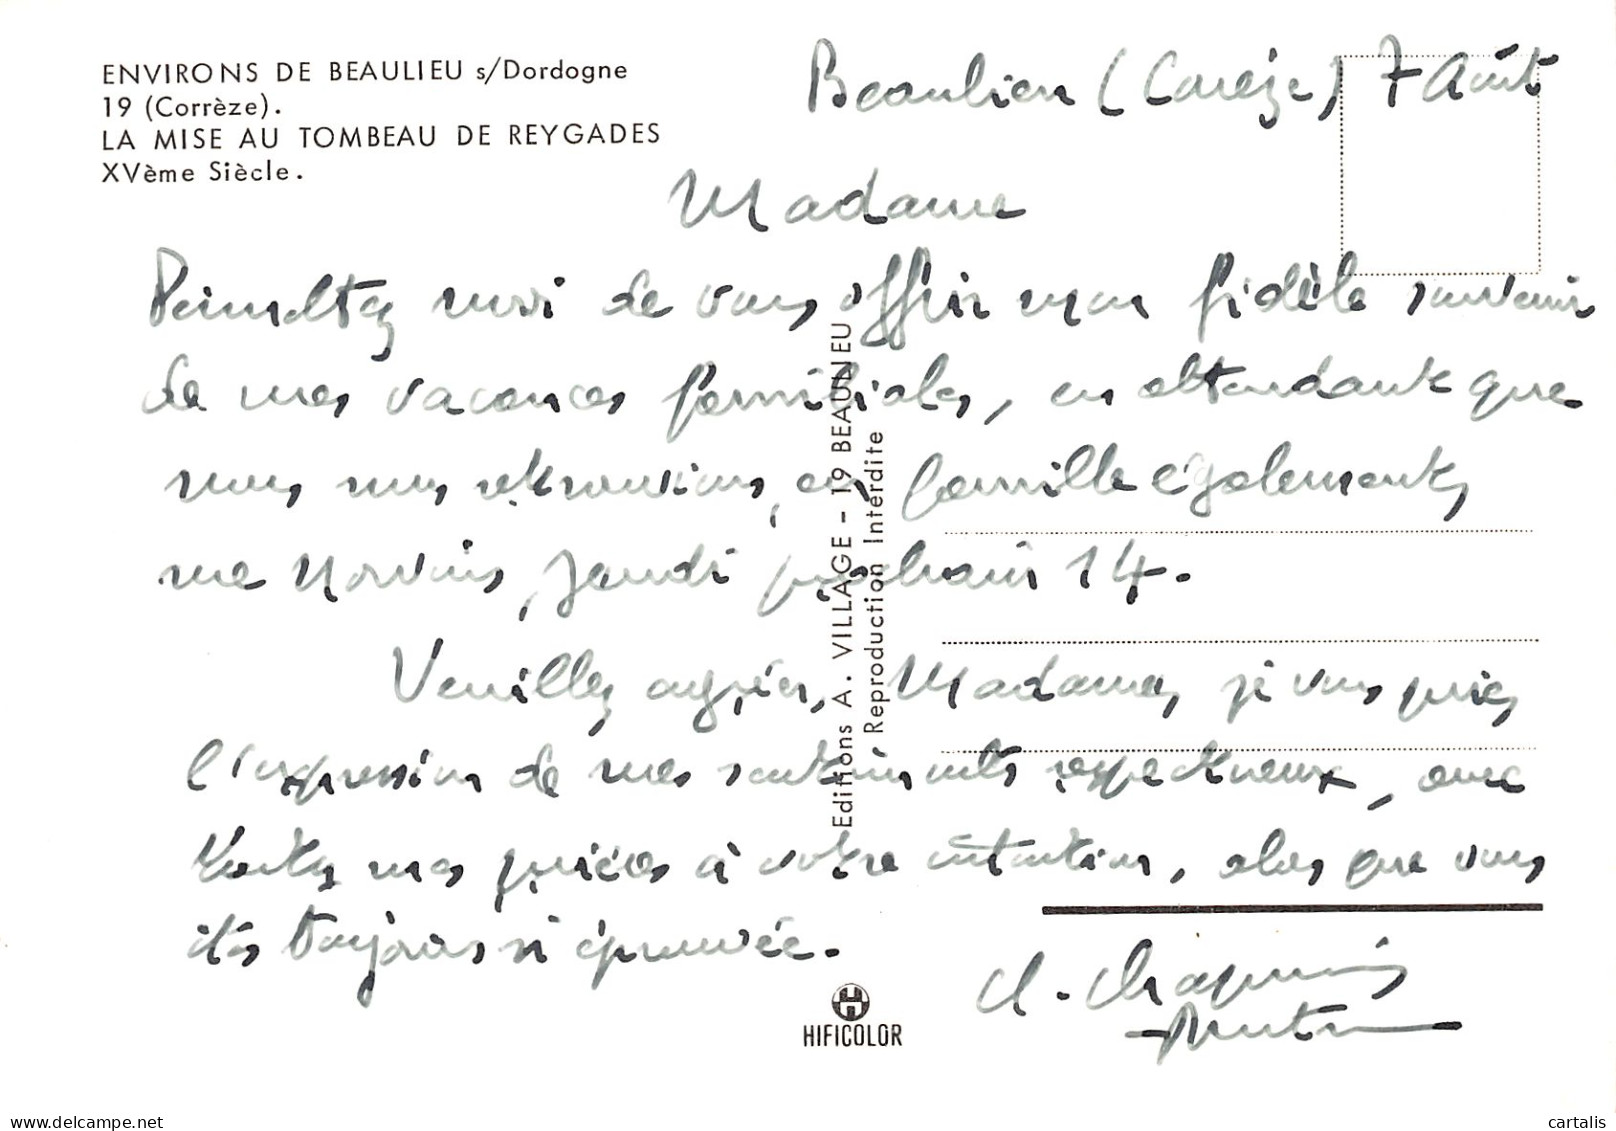 ENVIRONS DE BEAULIEU s/Dordogne
19 (Corrèze).
LA MISE AU TOMBEAU DE REYGADES
XVème Siècle.
Beaulieu (Corrèze) 7 Août
Madame
Permettez moi de vous offrir mon fidèle souvenir
de mes vacances familiales, en attendant que
nous nous retrouvions, en famille également,
rue Norvins, jeudi prochain 14.
Veuillez agréer, Madame, je vous prie,
l'expression de mes sentiments respectueux, avec
toutes mes prières à votre intention, alors que vous
êtes toujours si éprouvée.
Ch.
Editions A. VILLAGE - 19 BEAULIEU
Reproduction Interdite
HIFICOLOR
www.delcampe.net
cartalis